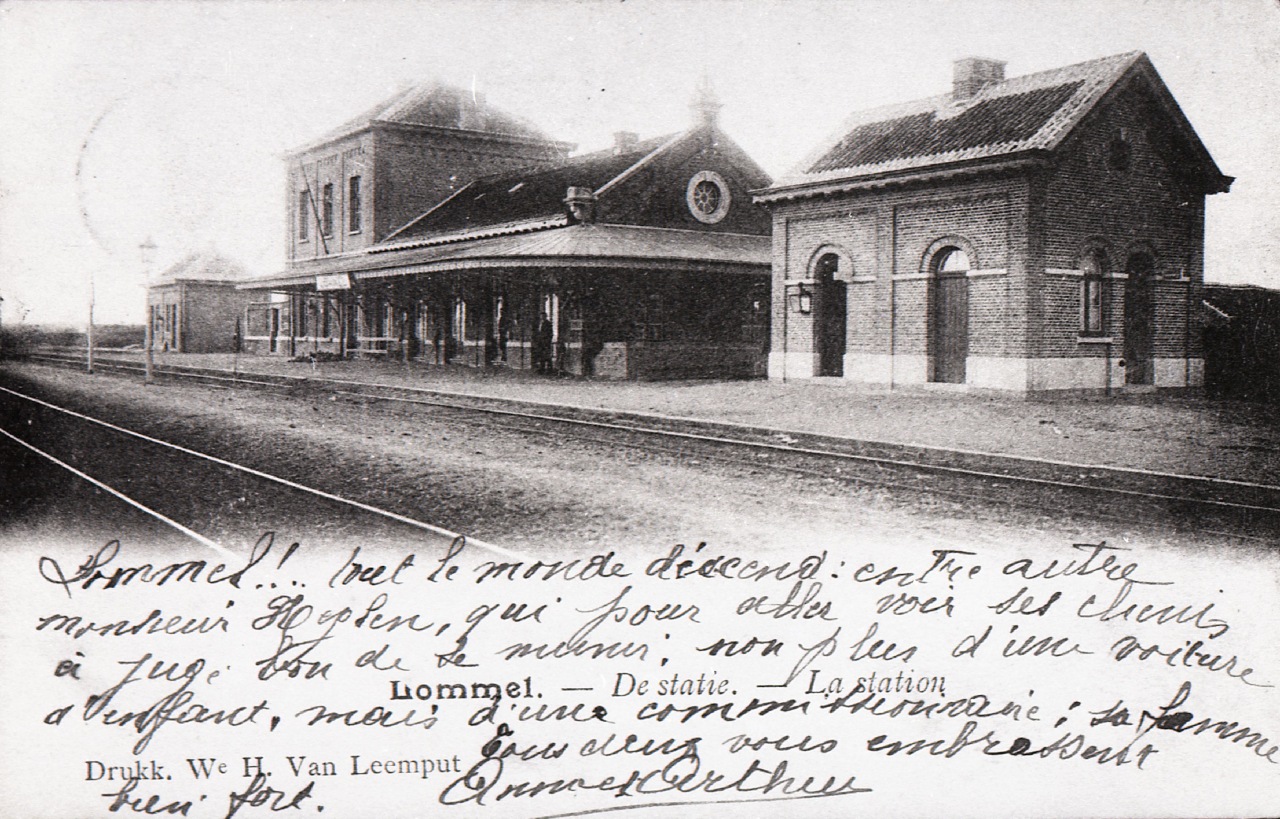 Lommel!.. tout le monde déscend: entre autre
monsieur qui pour aller voir ses chenis
a jugé bon de se munir, non plus d'une voiture
Lommel. — De statie. — La station
d'enfant, mais d'une commissionnaire; sa femme
Tous deux vous embrassent
Drukk. We H. Van Leemput
bien fort. Anna et Arthur